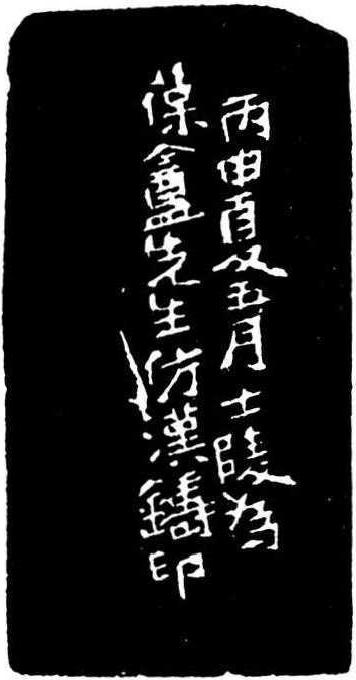 丙申夏五月士陵为
葆盦先生仿漢鑄印